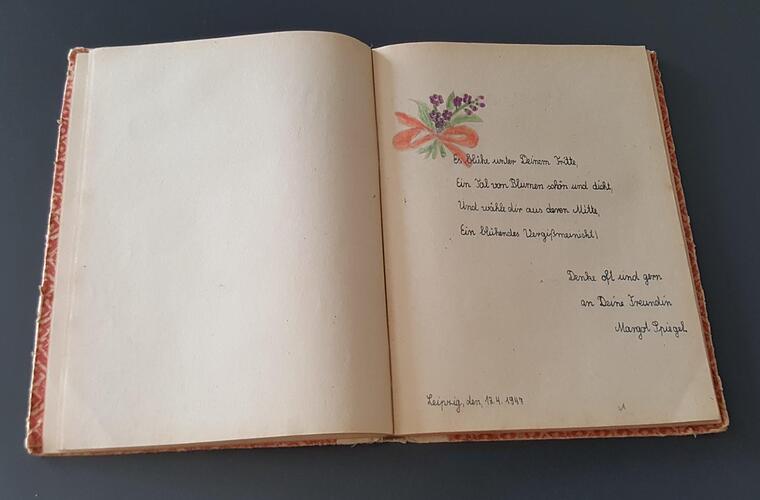 Es blühe unter Deinem Tritte,
Ein Tal von Blumen schön und dicht,
Und wähle dir aus deren Mitte,
Ein blühendes Vergißmeinicht!
Denke oft und gern
an Deine Freundin
Margot Spiegel
Leipzig, den, 17.4.1947